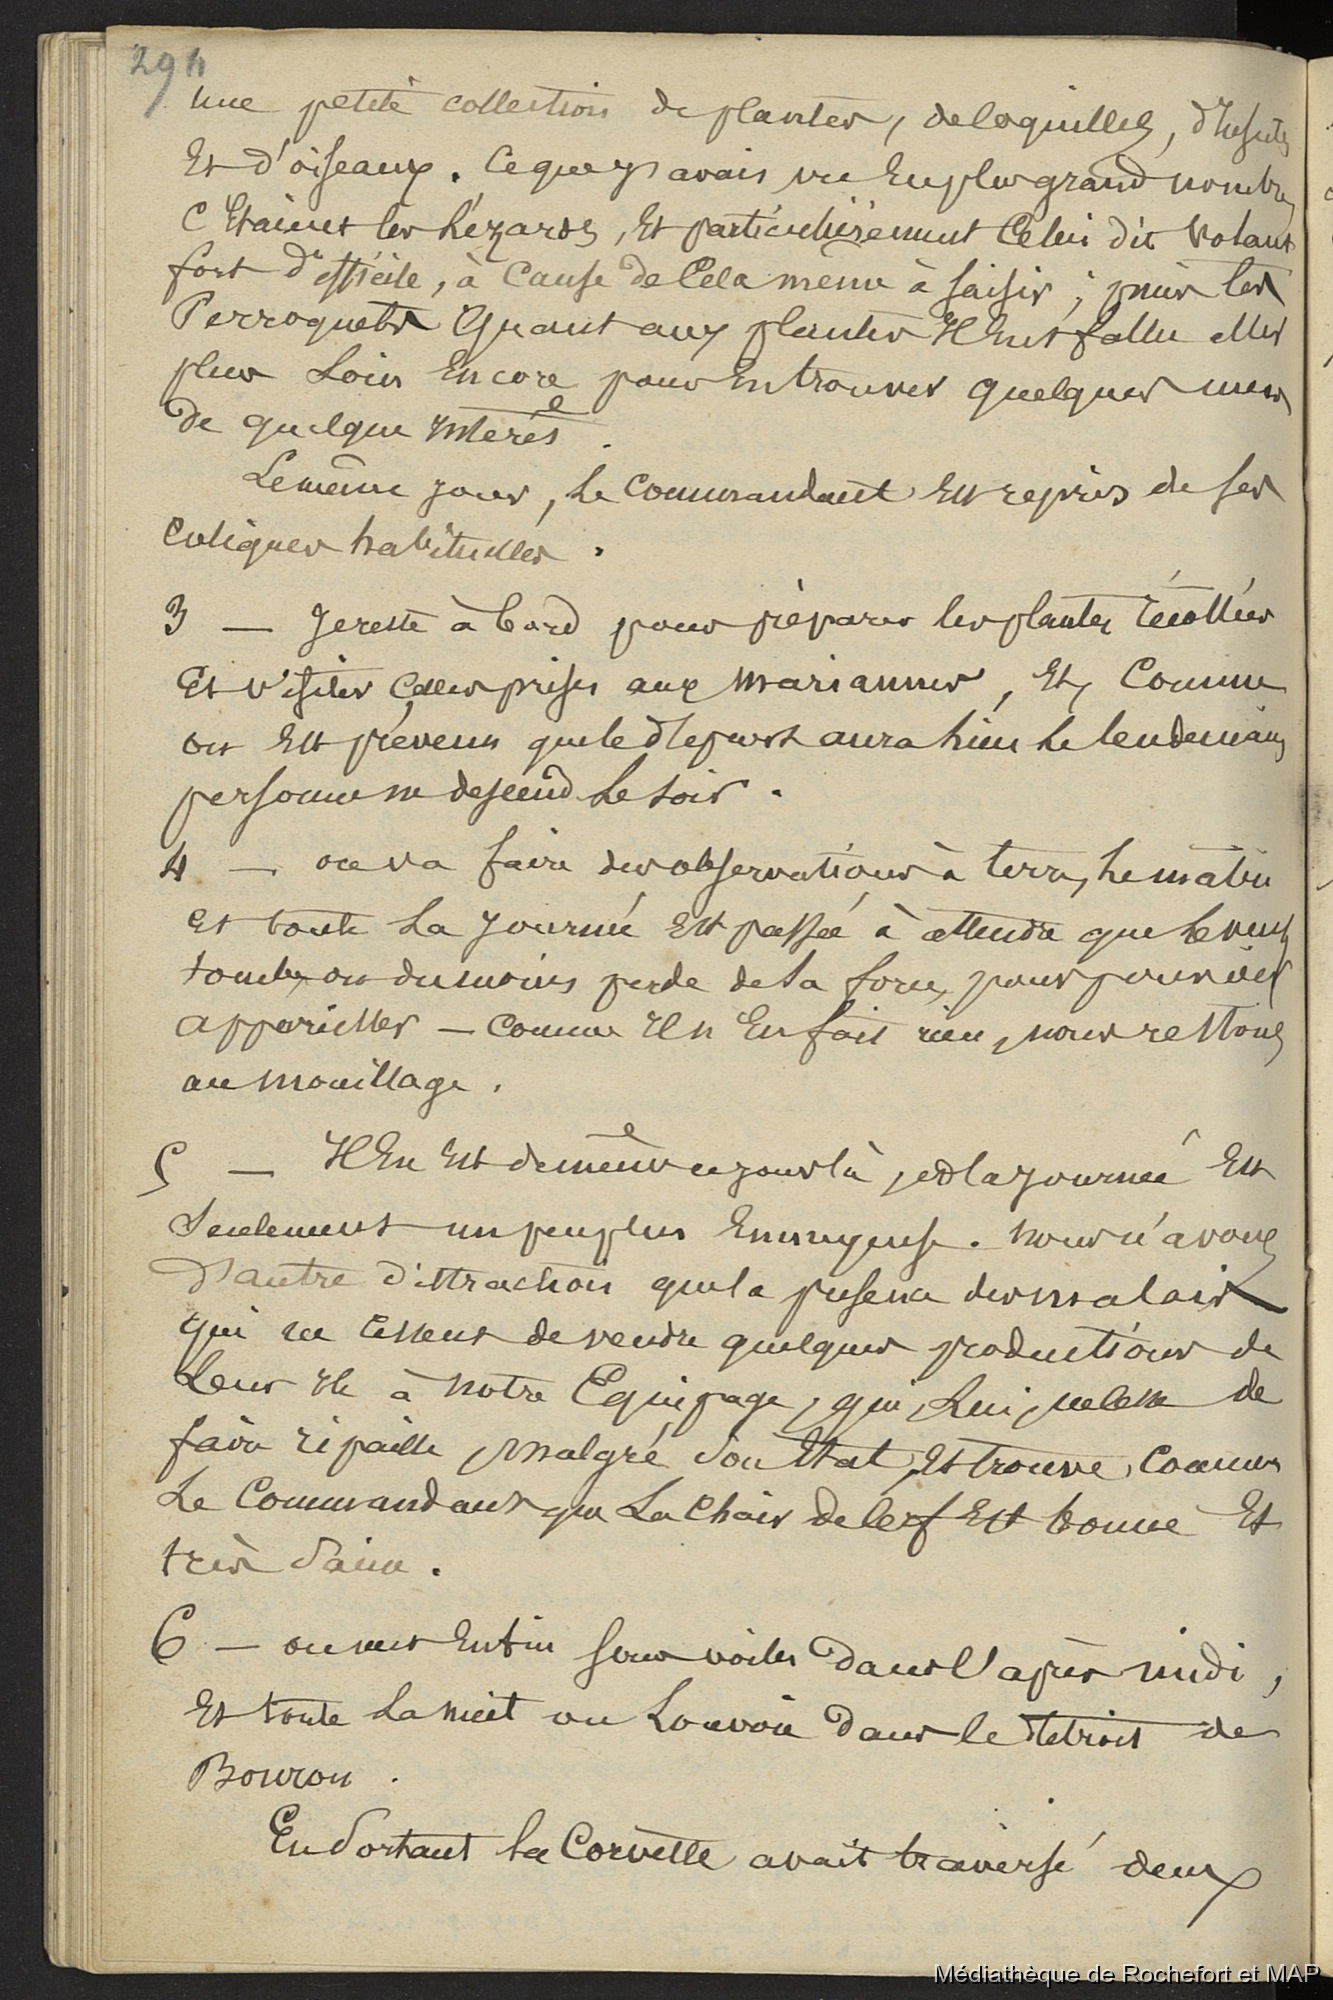 294
une petite collection de plantes, de coquilles, d'insectes
Et d'oiseaux. Ce que j'avais vu En plus grand nombre
C'Etaient les Lézards, Et particulièrement Celui dit Volant
fort difficile, à Cause de Cela même à saisir ; puis les
Perroquets Quant aux plantes Il Eut fallu aller
plus Loin Encore pour En trouver quelques unes
de quelque Intérêt.
Le même jour, Le Commandant Est repris de ses
Coliques habituelles.
3 — Je reste à bord pour préparer les plantes récoltées
Et visiter Celles prises aux Mariannes, Et, Comme
on Est prévenu que le départ aura lieu Le lendemain
personne ne descend Le soir.
4 — on va faire des observations à terre, Le matin
Et toute La Journée Est passée à attendre que Le vent
tombe, ou du moins perde de Sa force, pour pouvoir
appareiller — Comme Il n'En fait rien, nous restons
au mouillage.
5 — Il En Est de même ce jour là, et la journée Est
Seulement un peu plus Ennuyeuse. Nous n'avons
d'autre distraction que la présence des malais
qui ne Cessent de vendre quelques productions de
Leur Ile à notre Equipage, qui, Lui, ne Cesse de
faire ripaille, malgré son Etat, Et trouve, Comme
Le Commandant que La Chair de Cerf Est bonne Et
très Saine.
6 — on met Enfin sous voiles dans l'après midi,
Et toute La nuit on Louvoie dans le détroit de
Bouron.
En Sortant La Corvette avait traversé deux
Médiathèque de Rochefort et MAP